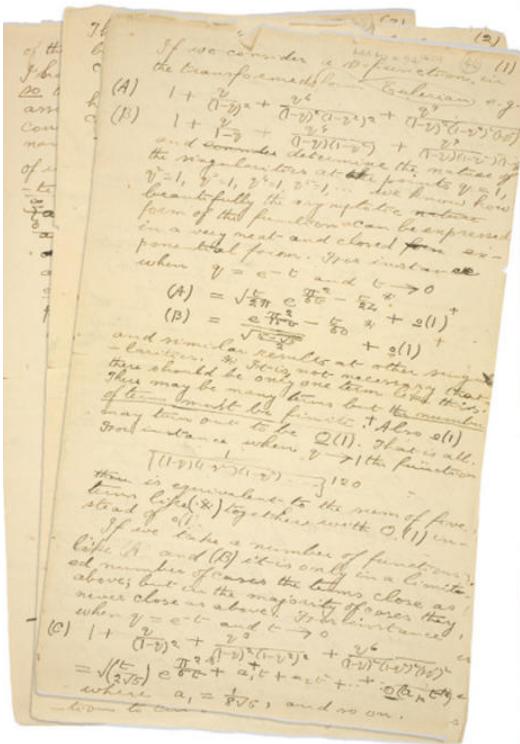 (2)
(1)
If we consider a ϑ-function in
the transformed Eulerian e.g.
(A) 1 + q/(1-q)² + q⁴/(1-q)²(1-q²)² + q⁹/(1-q)²(1-q²)²(1-q³)²
(B) 1 + q/1-q + q⁴/(1-q)(1-q²) + q⁹/(1-q)(1-q²)(1-q³)
and determine the nature of
the singularities at the points q = 1,
q²=1, q³=1, q⁴=1, ... we know how
beautifully the asymptotic
form of the function can be expressed
in a very neat and closed ex-
ponential form. For instance
when q = e^-t and t → 0
(A) = √(t/2π) e^(π²/6t - t/24) * + o(1) †
(B) = e^(π²/15t - t/60) / √((5-√5)/2) * + o(1) †
and similar results at other singu-
-larities. * It is not necessary that
there should be only one term like this.
There may be many terms but the number
of terms must be finite. † Also o(1)
may turn out to be O(1). That is all.
For instance when q → 1 the function
1/{(1-q)(1-q²)(1-q³)...}120
is equivalent to the sum of five
terms like (*) together with O(1) in-
stead of o(1).
If we take a number of functions
like A and (B) it is only in a limit-
ed number of cases the terms close as
above; but in the majority of cases they
never close as above. For instance
when q = e^-t and t → 0
(C) 1 + q/(1-q)² + q³/(1-q)²(1-q²)² + q⁶/(1-q)²(1-q²)²(1-q³)²
= √(t/2π√5) e^(π²/5t + a₁t + a₂t² + ... + O(aₖtᵏ))
where a₁ = 1/8√5, and so on.